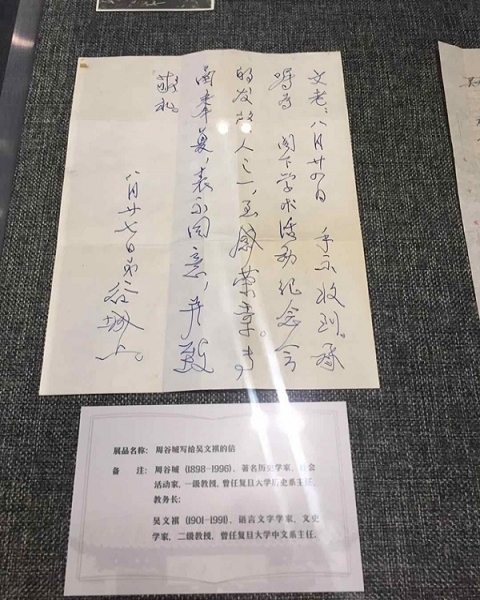 文老：八月廿四日 手示收到。承
嘱为 阁下学术活动纪念会
的发起人之一，至感荣幸，专
函奉复，表示同意，并致
敬礼。
八月廿七日弟谷城上。
展品名称： 周谷城写给吴文祺的信
备 注： 周谷城 (1898-1996)，著名历史学家，社会
活动家，一级教授，曾任复旦大学历史系主任、
教务长；
吴文祺 (1901-1991)，语言文字学家，文史
学家，二级教授，曾任复旦大学中文系主任.